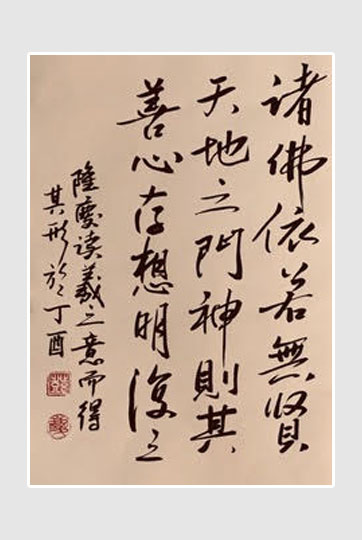 諸佛依若無賢
天地之門神則其
善心存想明復之
隆慶读羲之意而得
其形於丁酉